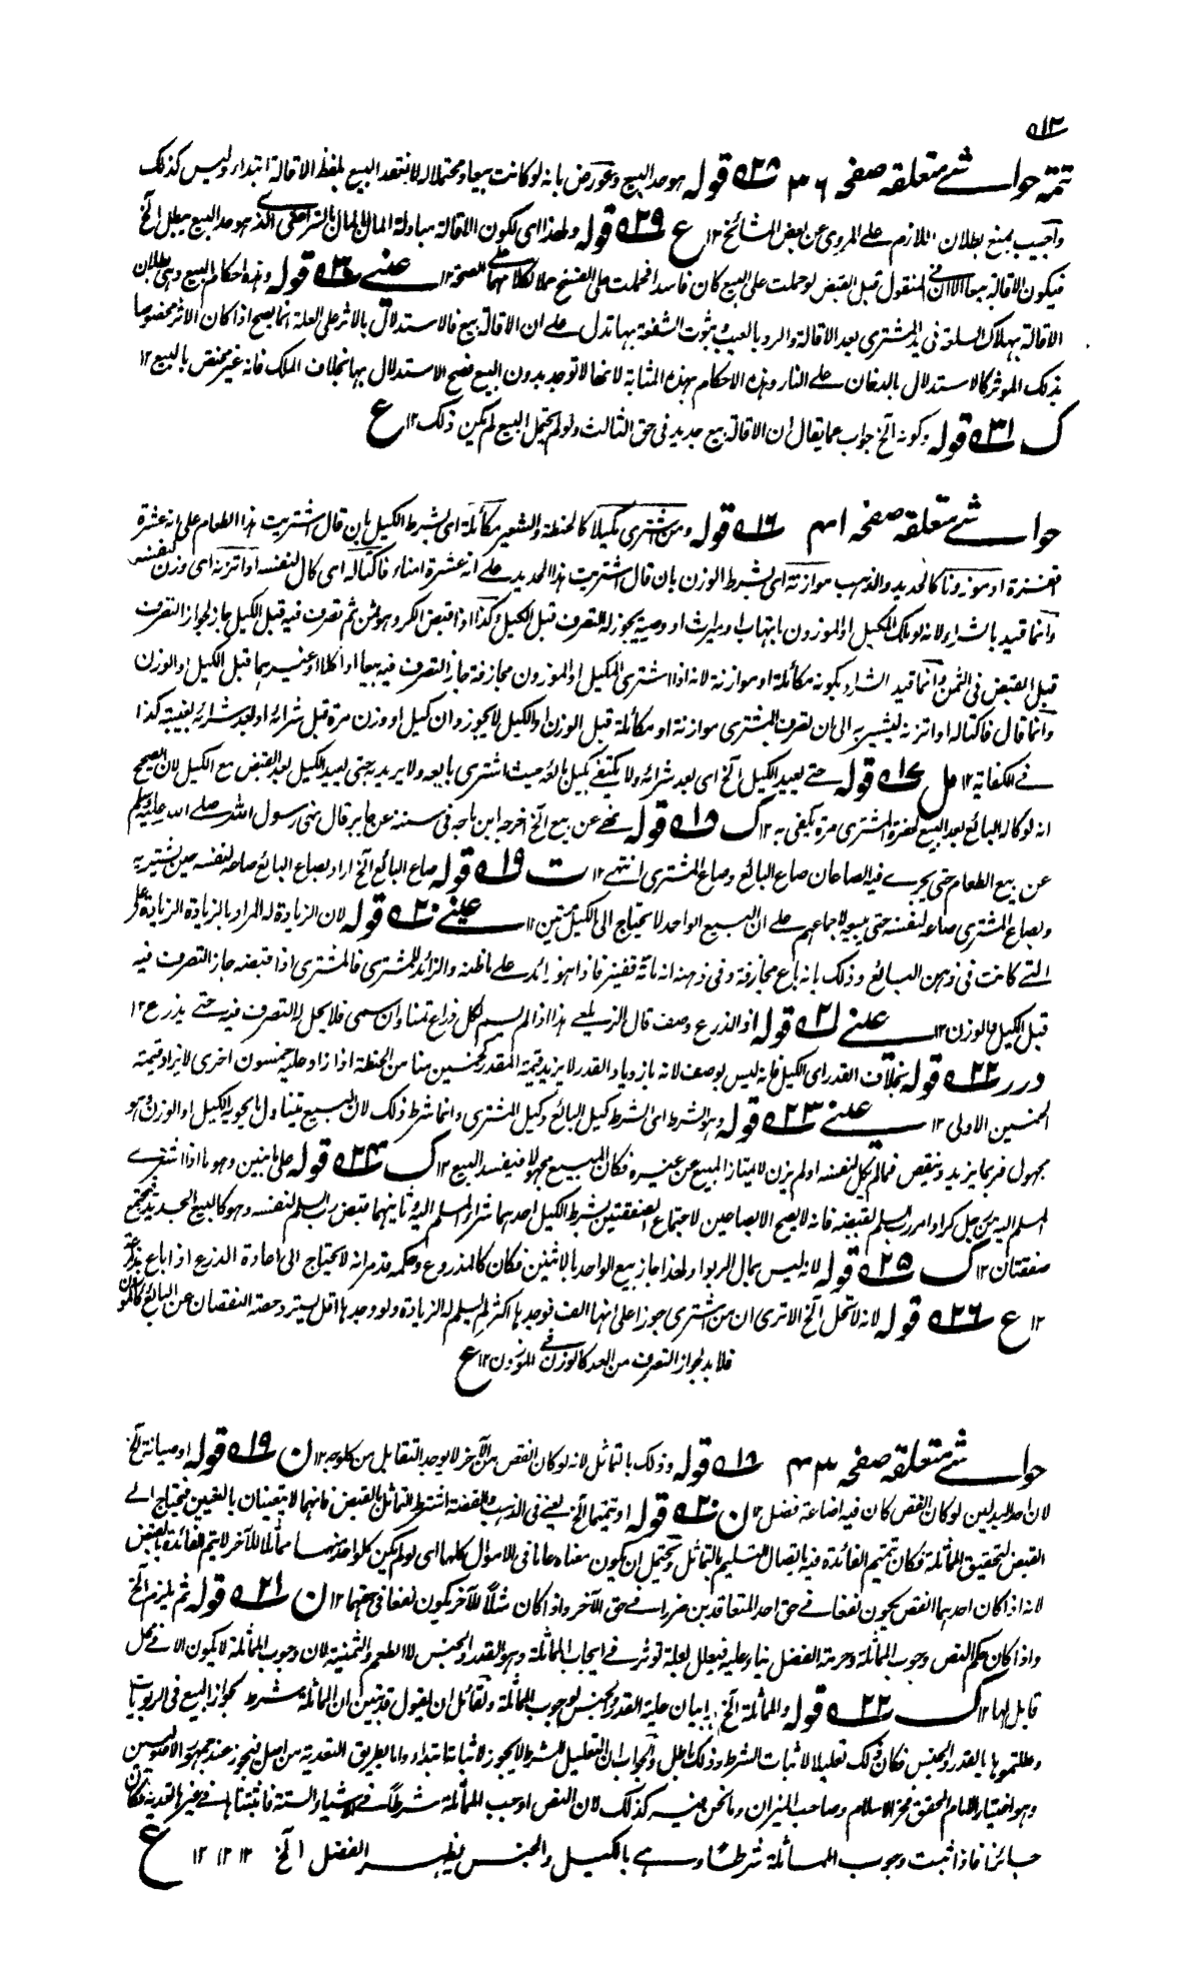 ۵۱۲
تتمہ حواشی متعلقہ صفحہ ۳۶ ۵۲۸ قولہ ہو حد البیع وعورض بانہ لو کانت بیعا ومحتملا لہ لانعقد البیع بلفظ الاقالۃ ابتداء ولیس کذلک
واجیب بمنع بطلان اللازم علی المروی عن بعض المشائخ ۱۲ ع ۵۲۹ قولہ ولہذا ای لکون الاقالۃ مبادلۃ المال بالمال بالتراضی الذی ہو حد البیع یبطل الخ
فیکون الاقالۃ بیعا الا ان فی المنقول قبل القبض لو حملت علی البیع کان فاسدا فحملت علی الفسخ حملا لکلامہما علی الصحۃ ۱۲ عینی ۵۳۰ قولہ وہذہ احکام البیع وہی بطلان
الاقالۃ بہلاک السلعۃ فی ید المشتری بعد الاقالۃ والرد بالعیب وثبوت الشفعۃ بہا تدل علی ان الاقالۃ بیع فالاستدلال بالاثر علی العلۃ انما یصح اذا کان الاثر مخصوصا
بذلک المؤثر کالاستدلال بالدخان علی النار وہذہ الاحکام بہذہ المثابۃ لانہا لا توجد بدون البیع فصح الاستدلال بہا بخلاف الملک فانہ غیر مختص بالبیع ۱۲
ک ۵۳۱ قولہ وکونہ الخ جواب عما یقال ان الاقالۃ بیع جدید فی حق الثالث ولو لم یحتمل البیع لم یکن ذلک ۱۲ ع
حواشی متعلقہ صفحہ ۴۱ ۵۱۶ قولہ ومن اشتری مکیلا کالحنطۃ والشعیر مکائلۃ ای بشرط الکیل بان قال اشتریت ہذا الطعام علی انہ عشرۃ
اقفزۃ او موزونا کالحدید والذہب موازنۃ ای بشرط الوزن بان قال اشتریت ہذا الحدید علی انہ عشرۃ امناء فاکتالہ ای کال لنفسہ او اتزنہ ای وزن لنفسہ
وانما قید بالشراء لانہ لو ملک المکیل او الموزون بانتہاب او میراث او وصیۃ یجوز لہ التصرف قبل الکیل وکذا اذا قبض الکر وہو ثمن ثم تصرف فیہ قبل الکیل جاز لجواز التصرف
قبل القبض فی الثمن وانما قید الشراء بکونہ مکائلۃ او موازنۃ لانہ اذا اشتری المکیل او الموزون مجازفۃ جاز التصرف فیہ بیعا او اکلا او غیرہما قبل الکیل او الوزن
وانما قال فاکتالہ او اتزنہ لیشیر بہ الی ان تصرف المشتری موازنۃ او مکائلۃ قبل الوزن او الکیل لا یجوز وان کیل او وزن مرۃ قبل شرائہ او بعد شرائہ بغیبتہ کذا
فی الکفایۃ ۱۲ مل ۵۱۷ قولہ حتی یعید الکیل الخ ای بعد شرائہ ولا یکتفی بکیل بائعہ حیث اشتری بائعہ ولا یرید بہ حتی یعید الکیل بعد القبض مع الکیل لان الصحیح
انہ لو کالہ البائع بعد البیع بحضرۃ المشتری مرۃ یکفی بہ ۱۲ ک ۵۱۸ قولہ نہی عن بیع الخ اخرجہ ابن ماجہ فی سننہ عن جابر قال نہی رسول اللہ صلی اللہ علیہ وسلم
عن بیع الطعام حتی یجری فیہ الصاعان صاع البائع وصاع المشتری انتہی ۱۲ ت ۵۱۹ قولہ صاع البائع الخ اراد بصاع البائع صاعہ لنفسہ حین یشتریہ
وبصاع المشتری صاعہ لنفسہ حتی یبیعہ لاجماعہم علی ان البیع الواحد لا یحتاج الی الکیل مرتین ۱۲ عینی ۵۲۰ قولہ لان الزیادۃ لہ المراد بالزیادۃ الزیادۃ علی
التی کانت فی ذہن البائع وذلک بانہ باع مجازفۃ وفی ذہنہ انہ مأۃ قفیز فاذا ہو زائد علی ما ظنہ والزائد للمشتری فالمشتری اذا قبضہ جاز التصرف فیہ
قبل الکیل والوزن ۱۲ عینی ۵۲۱ قولہ اذ الذرع وصف قال الزیلعی ہذا اذا لم یسم لکل ذراع ثمنا وان سمی فلا یحل لہ التصرف فیہ حتی یذرع ۱۲
درر ۵۲۲ قولہ بخلاف القدر ای الکیل فانہ لیس بوصف لانہ بازدیاد القدر لا یزید قیمۃ المقدر کخمسین منا من الحنطۃ اذا زاد علیہ خمسون اخری لا یزاد قیمتہ
الخمسین الاولی ۱۲ عینی ۵۲۳ قولہ وہو الشرط ای الشرط کیل البائع وکیل المشتری وانما شرط ذلک لان المبیع یتناول ما یحویہ الکیل او الوزن وہو
مجہول فربما یزید وینقص فما لم یکل لنفسہ او لم یزن لا یمتاز المبیع عن غیرہ فکان المبیع مجہولا فیفسد البیع ۱۲ ک ۵۲۴ قولہ علی ما بین وہو ما اذا اشتری
المسلم الیہ من رجل کرا وامر رب السلم بقبضہ فانہ لا یصح الا بصاعین لاجتماع الصفقتین بشرط الکیل احدہما شراء المسلم الیہ وثانیہما قبض رب السلم لنفسہ وہو کالبیع الجدید فیجتمع
صفقتان ۱۲ ک ۵۲۵ قولہ لانہ لیس بمال الربوا ولہذا جاز بیع الواحد بالاثنین فکان کالمذروع وحکمہ قد مر انہ لا یحتاج الی اعادۃ الذرع اذا باع مذارعۃ
۱۲ ع ۵۲۶ قولہ لانہ لا تحل الخ الا تری ان من اشتری جوزا علی انہا الف فوجدہا اکثر لم یسلم لہ الزیادۃ ولو وجدہا اقل یسترد حصۃ النقصان عن البائع کالموزون
فلا بد لجواز التصرف من العد کالوزن فی الموزون ۱۲ ع
حواشی متعلقہ صفحہ ۴۳ ۵۱۸ قولہ وذلک بالتماثل لانہ لو کان انقص من الآخر لا یوجد التقابل من کل وجہ ۱۲ ن ۵۱۹ قولہ او صیانۃ الخ
لان احد البدلین لو کان انقص کان فیہ اضاعۃ فضل ۱۲ ن ۵۲۰ قولہ او تتمیما الخ یعنی فی الذہب والفضۃ اشترط التماثل بالقبض فانہما لا یتعینان بالتعیین فیحتاج الی
القبض لتحقیق المماثلۃ فکان تتمیم الفائدۃ فیہ باتصال التسلیم بالتماثل ویحتمل ان یکون معناہ عاما فی الاموال کلہا ای لو لم یکن کل واحد منہما مماثلا للآخر لا یتم الفائدۃ بالقبض
لانہ اذا کان احدہما انقص یکون نفعا فی حق احد المتعاقدین ضررا فی حق الآخر واذا کان مثلا للآخر یکون نفعا فی حقہما ۱۲ ن ۵۲۱ قولہ ثم یلزم الخ
واذا کان حکم النص وجوب المماثلۃ وحرمۃ الفضل بناء علیہ فیعلل بعلۃ توثر فی ایجاب المماثلۃ وہو القدر والجنس لا الطعم والثمنیۃ لان وجوب المماثلۃ لا یکون الا فی محل
قابل لہا ۱۲ ک ۵۲۲ قولہ والمماثلۃ الخ بیان علیۃ القدر والجنس لوجوب المماثلۃ ولقائل ان یقول قد تبین ان المماثلۃ شرط لجواز البیع فی الربویات
وعللتموہا بالقدر والجنس فکان ذلک تعلیلا لاثبات الشرط وذلک باطل والجواب ان التعلیل للشرط لا یجوز لاثباتہ ابتداء واما بطریق التعدیۃ من اصل فیجوز عند جمہور الاصولیین
وہو اختیار الامام المحقق فخر الاسلام وصاحب المیزان وما نحن فیہ کذلک لان النص اوجب المماثلۃ شرطا فی الاشیاء الستۃ فاثبتناہا فی غیرہا تعدیۃ فکان
جائزا فاذا ثبت وجوب المماثلۃ شرطا وہی بالکیل والجنس یظہر الفضل الخ ۱۲ ۱۲ ۱۲ ع